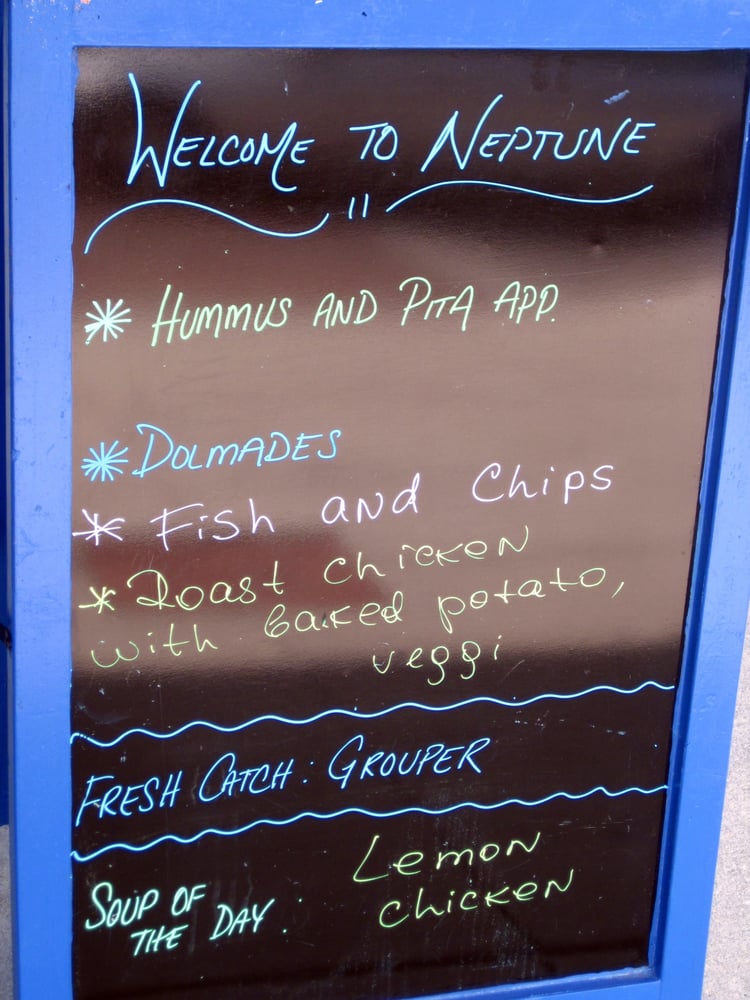 WELCOME TO NEPTUNE
* HUMMUS AND PITA APP.
* DOLMADES
* Fish and Chips
* Roast chicken
with baked potato,
veggi
FRESH CATCH: GROUPER
SOUP OF THE DAY: Lemon chicken